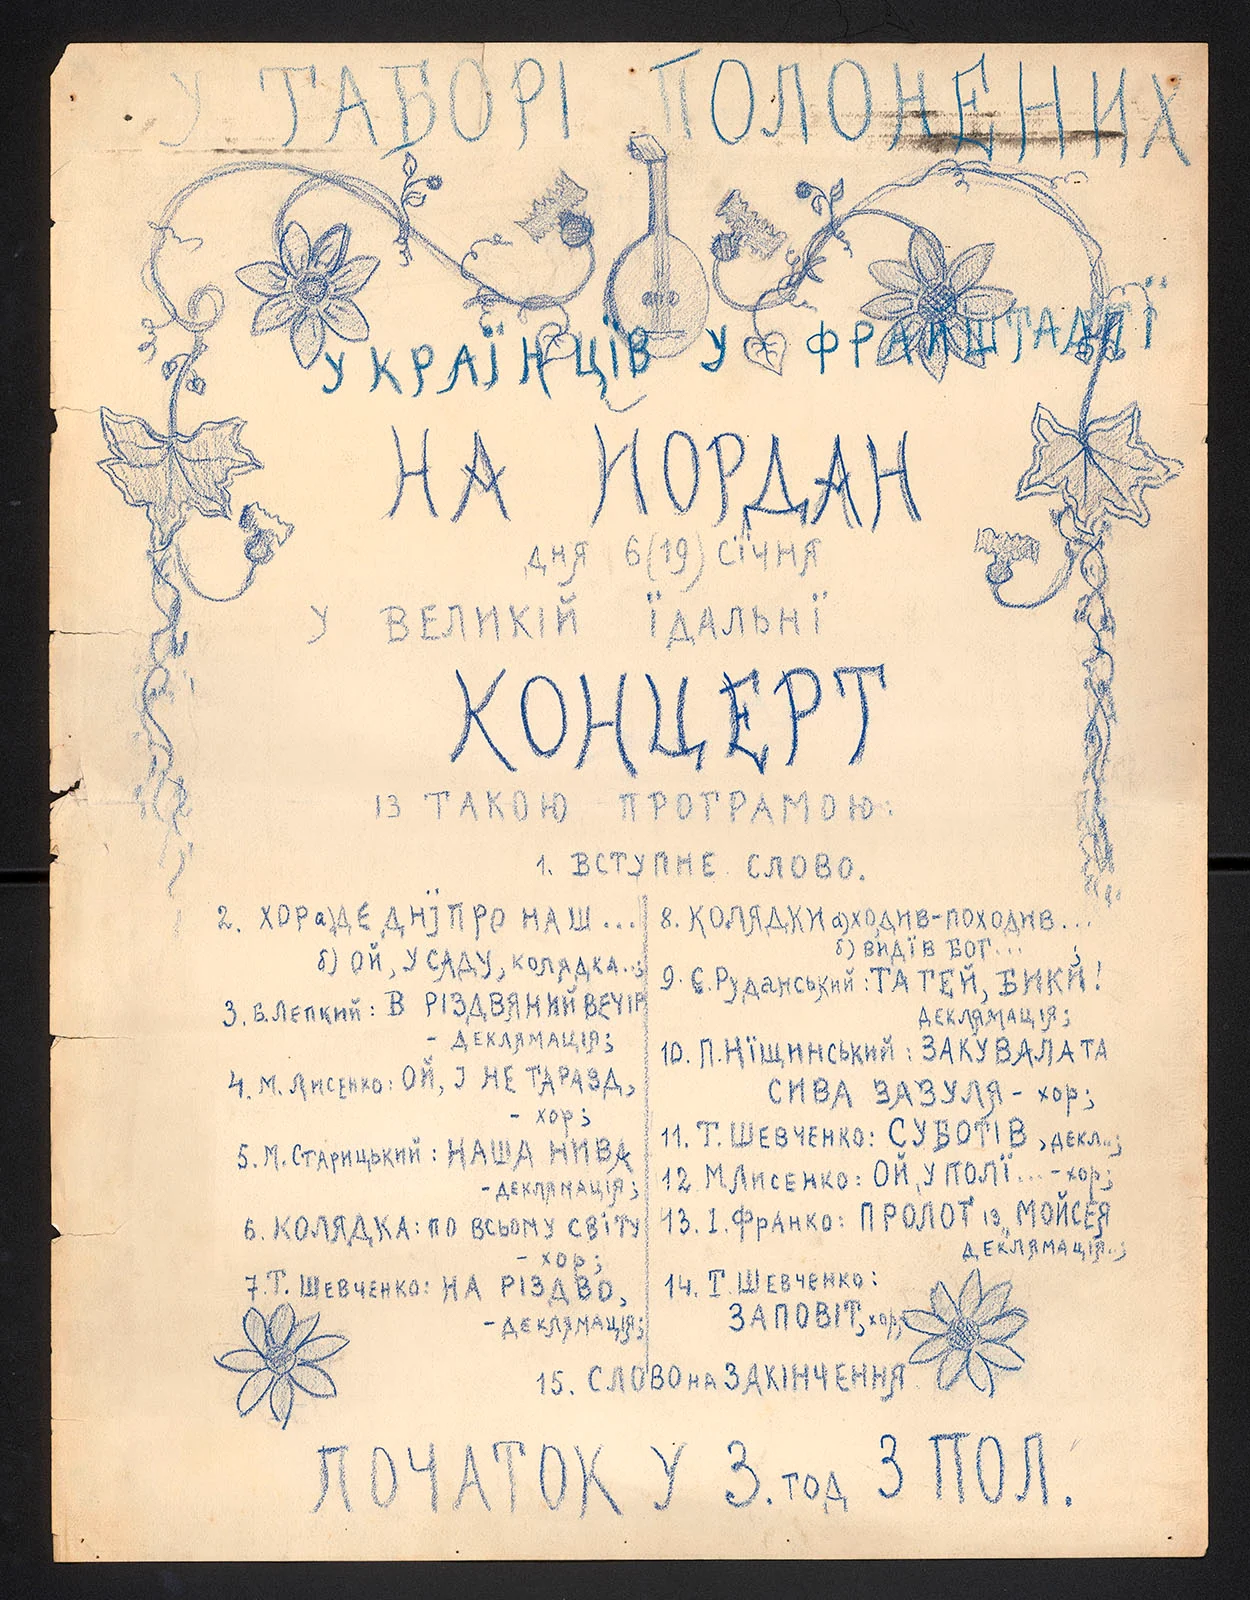 У ТАБОРІ ПОЛОНЕНИХ
УКРАЇНЦЇВ У ФРАЙШТАДТЇ
НА ЙОРДАН
ДНЯ 6(19) СЇЧНЯ
У ВЕЛИКІЙ ЇДАЛЬНЇ
КОНЦЕРТ
ІЗ ТАКОЮ ПРОҐРАМОЮ:
1. ВСТУПНЕ СЛОВО.
2. ХОР а) ДЕ ДНЇПРО НАШ...
б) ОЙ, У САДУ, КОЛЯДКА..;
3. Б. ЛЕПКИЙ: В РІЗДВЯНИЙ ВЕЧІР
- ДЕКЛЯМАЦІЯ;
4. М. ЛИСЕНКО: ОЙ, І НЕ ГАРАЗД,
- ХОР;
5. М. СТАРИЦЬКИЙ: НАША НИВА
- ДЕКЛЯМАЦІЯ;
6. КОЛЯДКА: ПО ВСЬОМУ СВЇТУ
- ХОР;
7. Т. ШЕВЧЕНКО: НА РІЗДВО,
- ДЕКЛЯМАЦІЯ;
8. КОЛЯДКИ а) ХОДИВ-ПОХОДИВ...
б) ВИДЇВ БОГ...;
9. С. Руданський: ТА ГЕЙ, БИКИ!
ДЕКЛЯМАЦІЯ;
10. П. НЇЩИНСЬКИЙ: ЗАКУВАЛА ТА
СИВА ЗАЗУЛЯ - хор;
11. Т. ШЕВЧЕНКО: СУБОТІВ, ДЕКЛ..;
12. М. ЛИСЕНКО: ОЙ, У ПОЛЇ... - хор;
13. І. ФРАНКО: ПРОЛОҐ ІЗ „МОЙСЕЯ
ДЕКЛЯМАЦІЯ..;
14. Т. ШЕВЧЕНКО:
ЗАПОВІТ, хор;
15. СЛОВО НА ЗАКІНЧЕННЯ
ПОЧАТОК У 3. ГОД З ПОЛ.